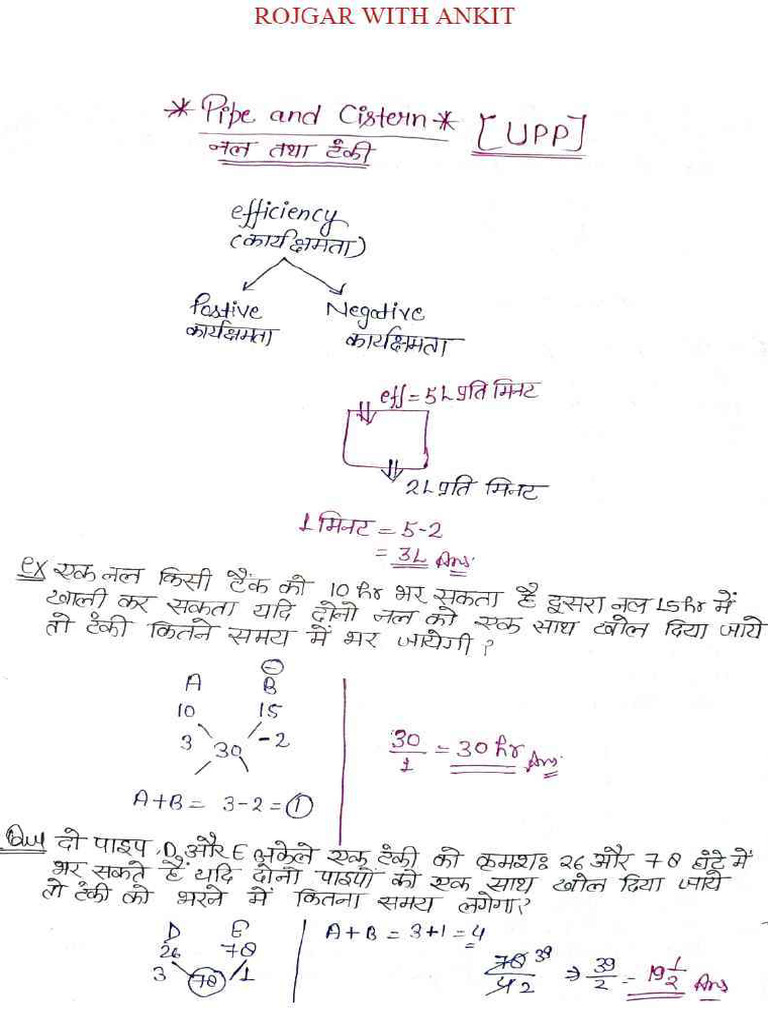 ROJGAR WITH ANKIT
* Pipe and Cistern * [UPP]
नल तथा टंकी
efficiency
(कार्यक्षमता)
Postive Negative
कार्यक्षमता कार्यक्षमता
eff = 5L प्रति मिनट
2L प्रति मिनट
1 मिनट = 5-2
= 3L Ans:
ex एक नल किसी टैंक को 10 hr भर सकता है दूसरा नल 15 hr में
खाली कर सकता यदि दोनो नल को एक साथ खोल दिया जाये
तो टंकी कितने समय में भर जायेगी ?
A B ⊖
10 15
3 30 -2
30/1 = 30 hr Ans:
A+B = 3-2 = 1
Que दो पाइप, D और E अकेले एक टंकी को क्रमशः 26 और 78 घंटे में
भर सकते हैं यदि दोनो पाइपों को एक साथ खोल दिया जाये
तो टंकी को भरने में कितना समय लगेगा?
D E
26 78
3 78 1
A+B = 3+1 = 4
78 39 / 4 2 ⇒ 39/2 = 19 1/2 Ans